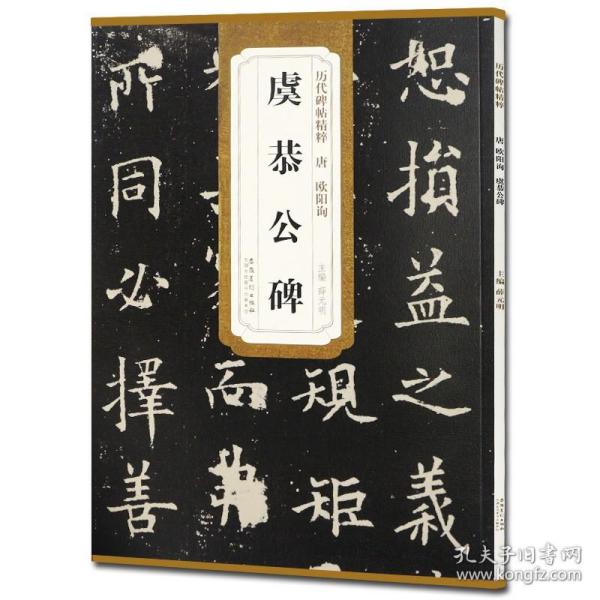 恕損益之義
規矩
而
所同必擇善
历代碑帖精粹 唐 欧阳询
虞恭公碑
主编 薛元明
安徽美术出版社
历代碑帖精粹 唐 欧阳询 虞恭公碑
主编 薛元明
孔夫子旧书网
www.kongfz.com